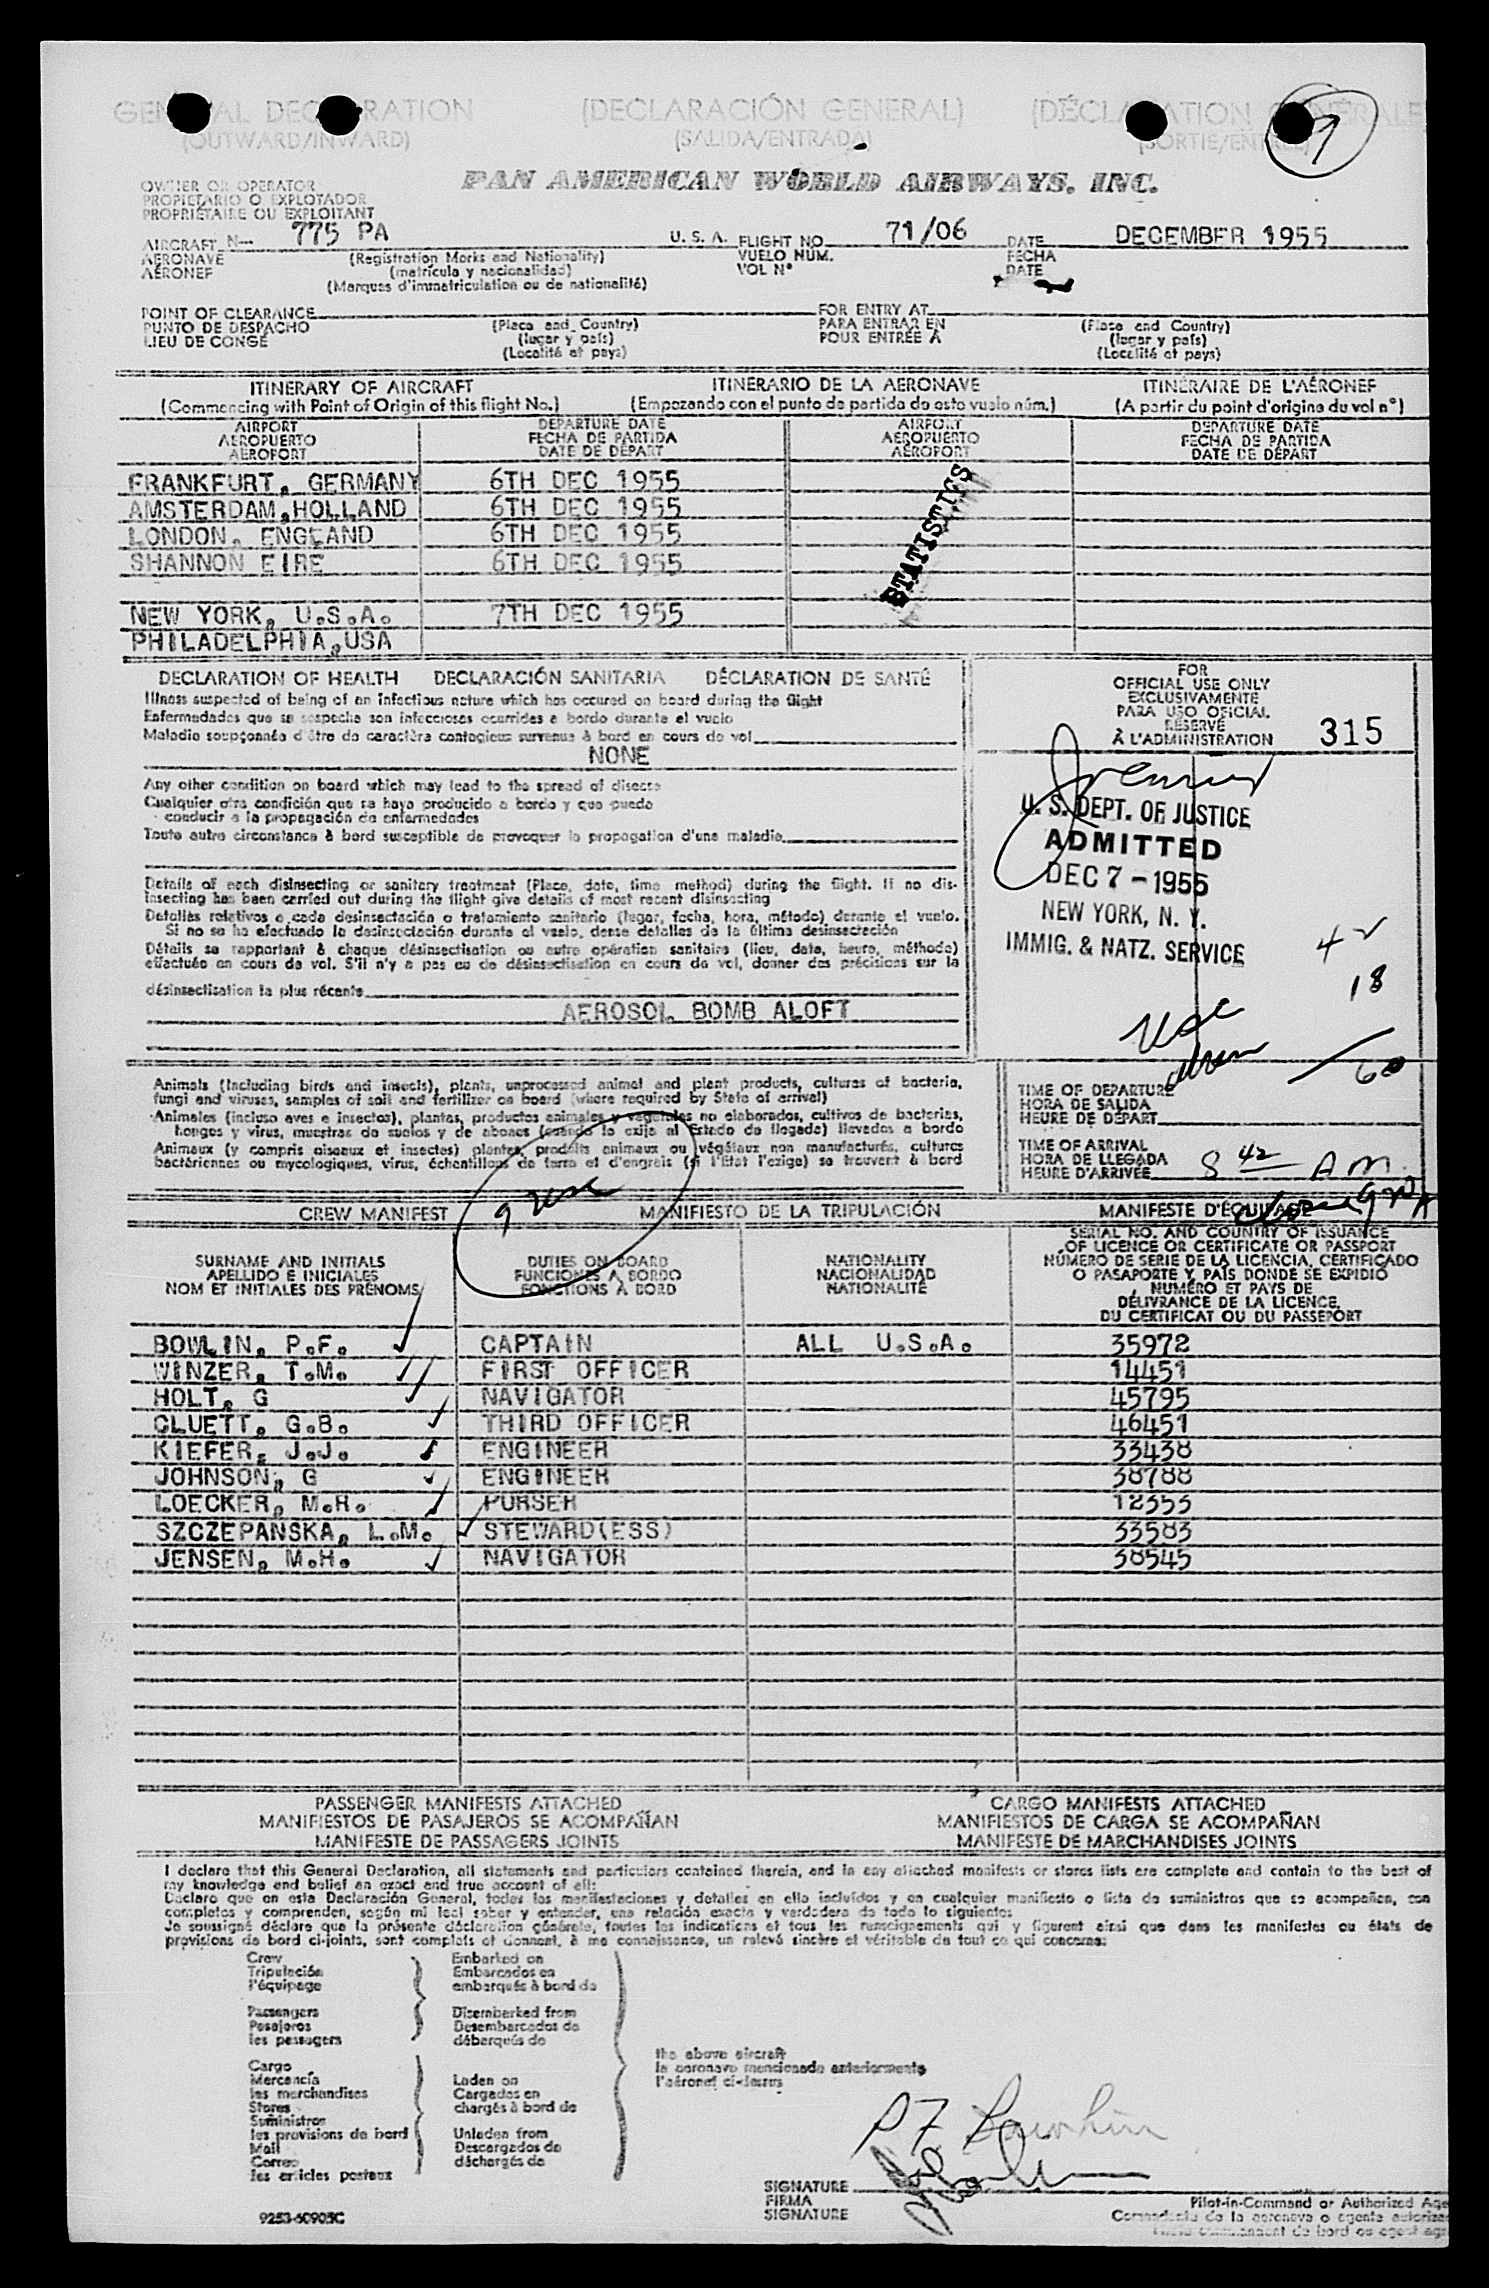 GENERAL DECLARATION (DECLARACIÓN GENERAL) (DÉCLARATION GÉNÉRALE)
(OUTWARD/INWARD) (SALIDA/ENTRADA) (SORTIE/ENTRÉE)
9
PAN AMERICAN WORLD AIRWAYS, INC.
OWNER OR OPERATOR
PROPIETARIO O EXPLOTADOR
PROPRIÉTAIRE OU EXPLOITANT
AIRCRAFT N— 775 PA U. S. A. FLIGHT NO. 71/06 DATE DECEMBER 1955
AERONAVE (Registration Marks and Nationality) VUELO NUM. FECHA
AÉRONEF (matrícula y nacionalidad) VOL N° DATE
(Marques d'immatriculation ou de nationalité)
POINT OF CLEARANCE FOR ENTRY AT
PUNTO DE DESPACHO (Place and Country) PARA ENTRAR EN (Place and Country)
LIEU DE CONGÉ (lugar y país) POUR ENTRÉE A (lugar y país)
(Localité et pays) (Localité et pays)
ITINERARY OF AIRCRAFT ITINERARIO DE LA AERONAVE ITINÉRAIRE DE L'AÉRONEF
(Commencing with Point of Origin of this flight No.) (Empezando con el punto de partida de este vuelo núm.) (A partir du point d'origine du vol n°)
AIRPORT DEPARTURE DATE AIRPORT DEPARTURE DATE
AEROPUERTO FECHA DE PARTIDA AEROPUERTO FECHA DE PARTIDA
AÉROPORT DATE DE DÉPART AÉROPORT DATE DE DÉPART
FRANKFURT, GERMANY 6TH DEC 1955
AMSTERDAM,HOLLAND 6TH DEC 1955
LONDON, ENGLAND 6TH DEC 1955
SHANNON EIRE 6TH DEC 1955
STATISTICS
NEW YORK, U.S.A. 7TH DEC 1955
PHILADELPHIA,USA
DECLARATION OF HEALTH DECLARACIÓN SANITARIA DÉCLARATION DE SANTÉ
Illness suspected of being of an infectious nature which has occured on board during the flight
Enfermedades que se sospecha son infecciosas ocurridas a bordo durante el vuelo
Maladie soupçonnée d'être de caractère contagieux survenue à bord en cours de vol
NONE
Any other condition on board which may lead to the spread of disease
Cualquier otra condición que se haya producido a bordo y que pueda
conducir a la propagación de enfermedades
Toute autre circonstance à bord susceptible de provoquer la propagation d'une maladie
Details of each disinsecting or sanitary treatment (Place, date, time method) during the flight. If no dis-
insecting has been carried out during the flight give details of most recent disinsecting
Detalles relativos a cada desinsectación o tratamiento sanitario (lugar, fecha, hora, método) durante el vuelo.
Si no se ha efectuado la desinsectación durante el vuelo, dense detalles de la última desinsectación
Détails se rapportant à chaque désinsectisation ou autre opération sanitaire (lieu, date, heure, méthode)
effectuée en cours de vol. S'il n'y a pas eu de désinsectisation en cours de vol, donner des précisions sur la
désinsectisation la plus récente
AEROSOL BOMB ALOFT
FOR
OFFICIAL USE ONLY
EXCLUSIVAMENTE
PARA USO OFICIAL
RÉSERVÉ
À L'ADMINISTRATION 315
U. S. DEPT. OF JUSTICE
ADMITTED
DEC 7 - 1955
NEW YORK, N. Y.
IMMIG. & NATZ. SERVICE
42
18
60
Animals (Including birds and insects), plants, unprocessed animal and plant products, cultures of bacteria,
fungi and viruses, samples of soil and fertilizer on board (where required by State of arrival)
Animales (incluso aves e insectos), plantas, productos animales y vegetales no elaborados, cultivos de bacterias,
hongos y virus, muestras de suelos y de abonos (cuando lo exija el Estado de llegada) llevados a bordo
Animaux (y compris oiseaux et insectes) plantes, produits animaux ou végétaux non manufacturés, cultures
bactériennes ou mycologiques, virus, échantillons de terre et d'engrais (si l'État l'exige) se trouvent à bord
TIME OF DEPARTURE
HORA DE SALIDA
HEURE DE DÉPART
TIME OF ARRIVAL
HORA DE LLEGADA
HEURE D'ARRIVÉE 8 42 AM
CREW MANIFEST MANIFIESTO DE LA TRIPULACIÓN MANIFESTE D'ÉQUIPAGE
SURNAME AND INITIALS
APELLIDO E INICIALES
NOM ET INITIALES DES PRÉNOMS
DUTIES ON BOARD
FUNCIONES A BORDO
FONCTIONS À BORD
NATIONALITY
NACIONALIDAD
NATIONALITÉ
SERIAL NO. AND COUNTRY OF ISSUANCE
OF LICENCE OR CERTIFICATE OR PASSPORT
NÚMERO DE SERIE DE LA LICENCIA, CERTIFICADO
O PASAPORTE Y PAÍS DONDE SE EXPIDIÓ
NUMÉRO ET PAYS DE
DÉLIVRANCE DE LA LICENCE,
DU CERTIFICAT OU DU PASSEPORT
BOWLIN, P.F. CAPTAIN ALL U.S.A. 35972
WINZER, T.M. FIRST OFFICER 14451
HOLT, G NAVIGATOR 45795
CLUETT, G.B. THIRD OFFICER 46451
KIEFER, J.J. ENGINEER 33438
JOHNSON, G ENGINEER 38788
LOECKER, M.R. PURSER 12353
SZCZEPANSKA, L.M. STEWARD(ESS) 33583
JENSEN, M.H. NAVIGATOR 38545
PASSENGER MANIFESTS ATTACHED CARGO MANIFESTS ATTACHED
MANIFIESTOS DE PASAJEROS SE ACOMPAÑAN MANIFIESTOS DE CARGA SE ACOMPAÑAN
MANIFESTE DE PASSAGERS JOINTS MANIFESTE DE MARCHANDISES JOINTS
I declare that this General Declaration, all statements and particulars contained therein, and in any attached manifests or stores lists are complete and contain to the best of
my knowledge and belief an exact and true account of all:
Declaro que en esta Declaración General, todas las manifestaciones y detalles en ella incluídos y en cualquier manifiesto o lista de suministros que se acompañen, son
completos y comprenden, según mi leal saber y entender, una relación exacta y verdadera de todo lo siguiente:
Je soussigné déclare que la présente déclaration générale, toutes les indications et tous les renseignements qui y figurent ainsi que dans les manifestes ou états de
provisions de bord ci-joints, sont complets et donnent, à ma connaissance, un relevé sincère et véritable de tout ce qui concerne:
Crew Embarked on
Tripulación Embarcados en
l'équipage embarqués à bord de
Passengers Disembarked from
Pasajeros Desembarcados de
les passagers débarqués de
the above aircraft
la aeronave mencionada anteriormente
l'aéronef ci-dessus
Cargo
Mercancía Laden on
les marchandises Cargados en
Stores chargés à bord de
Suministros
les provisions de bord Unladen from
Mail Descargados de
Correo déchargés de
les articles postaux
P F Bowlin
SIGNATURE
FIRMA
SIGNATURE
Pilot-in-Command or Authorized Age
Comandante de la aeronave o agente autoriza
9253-60905C